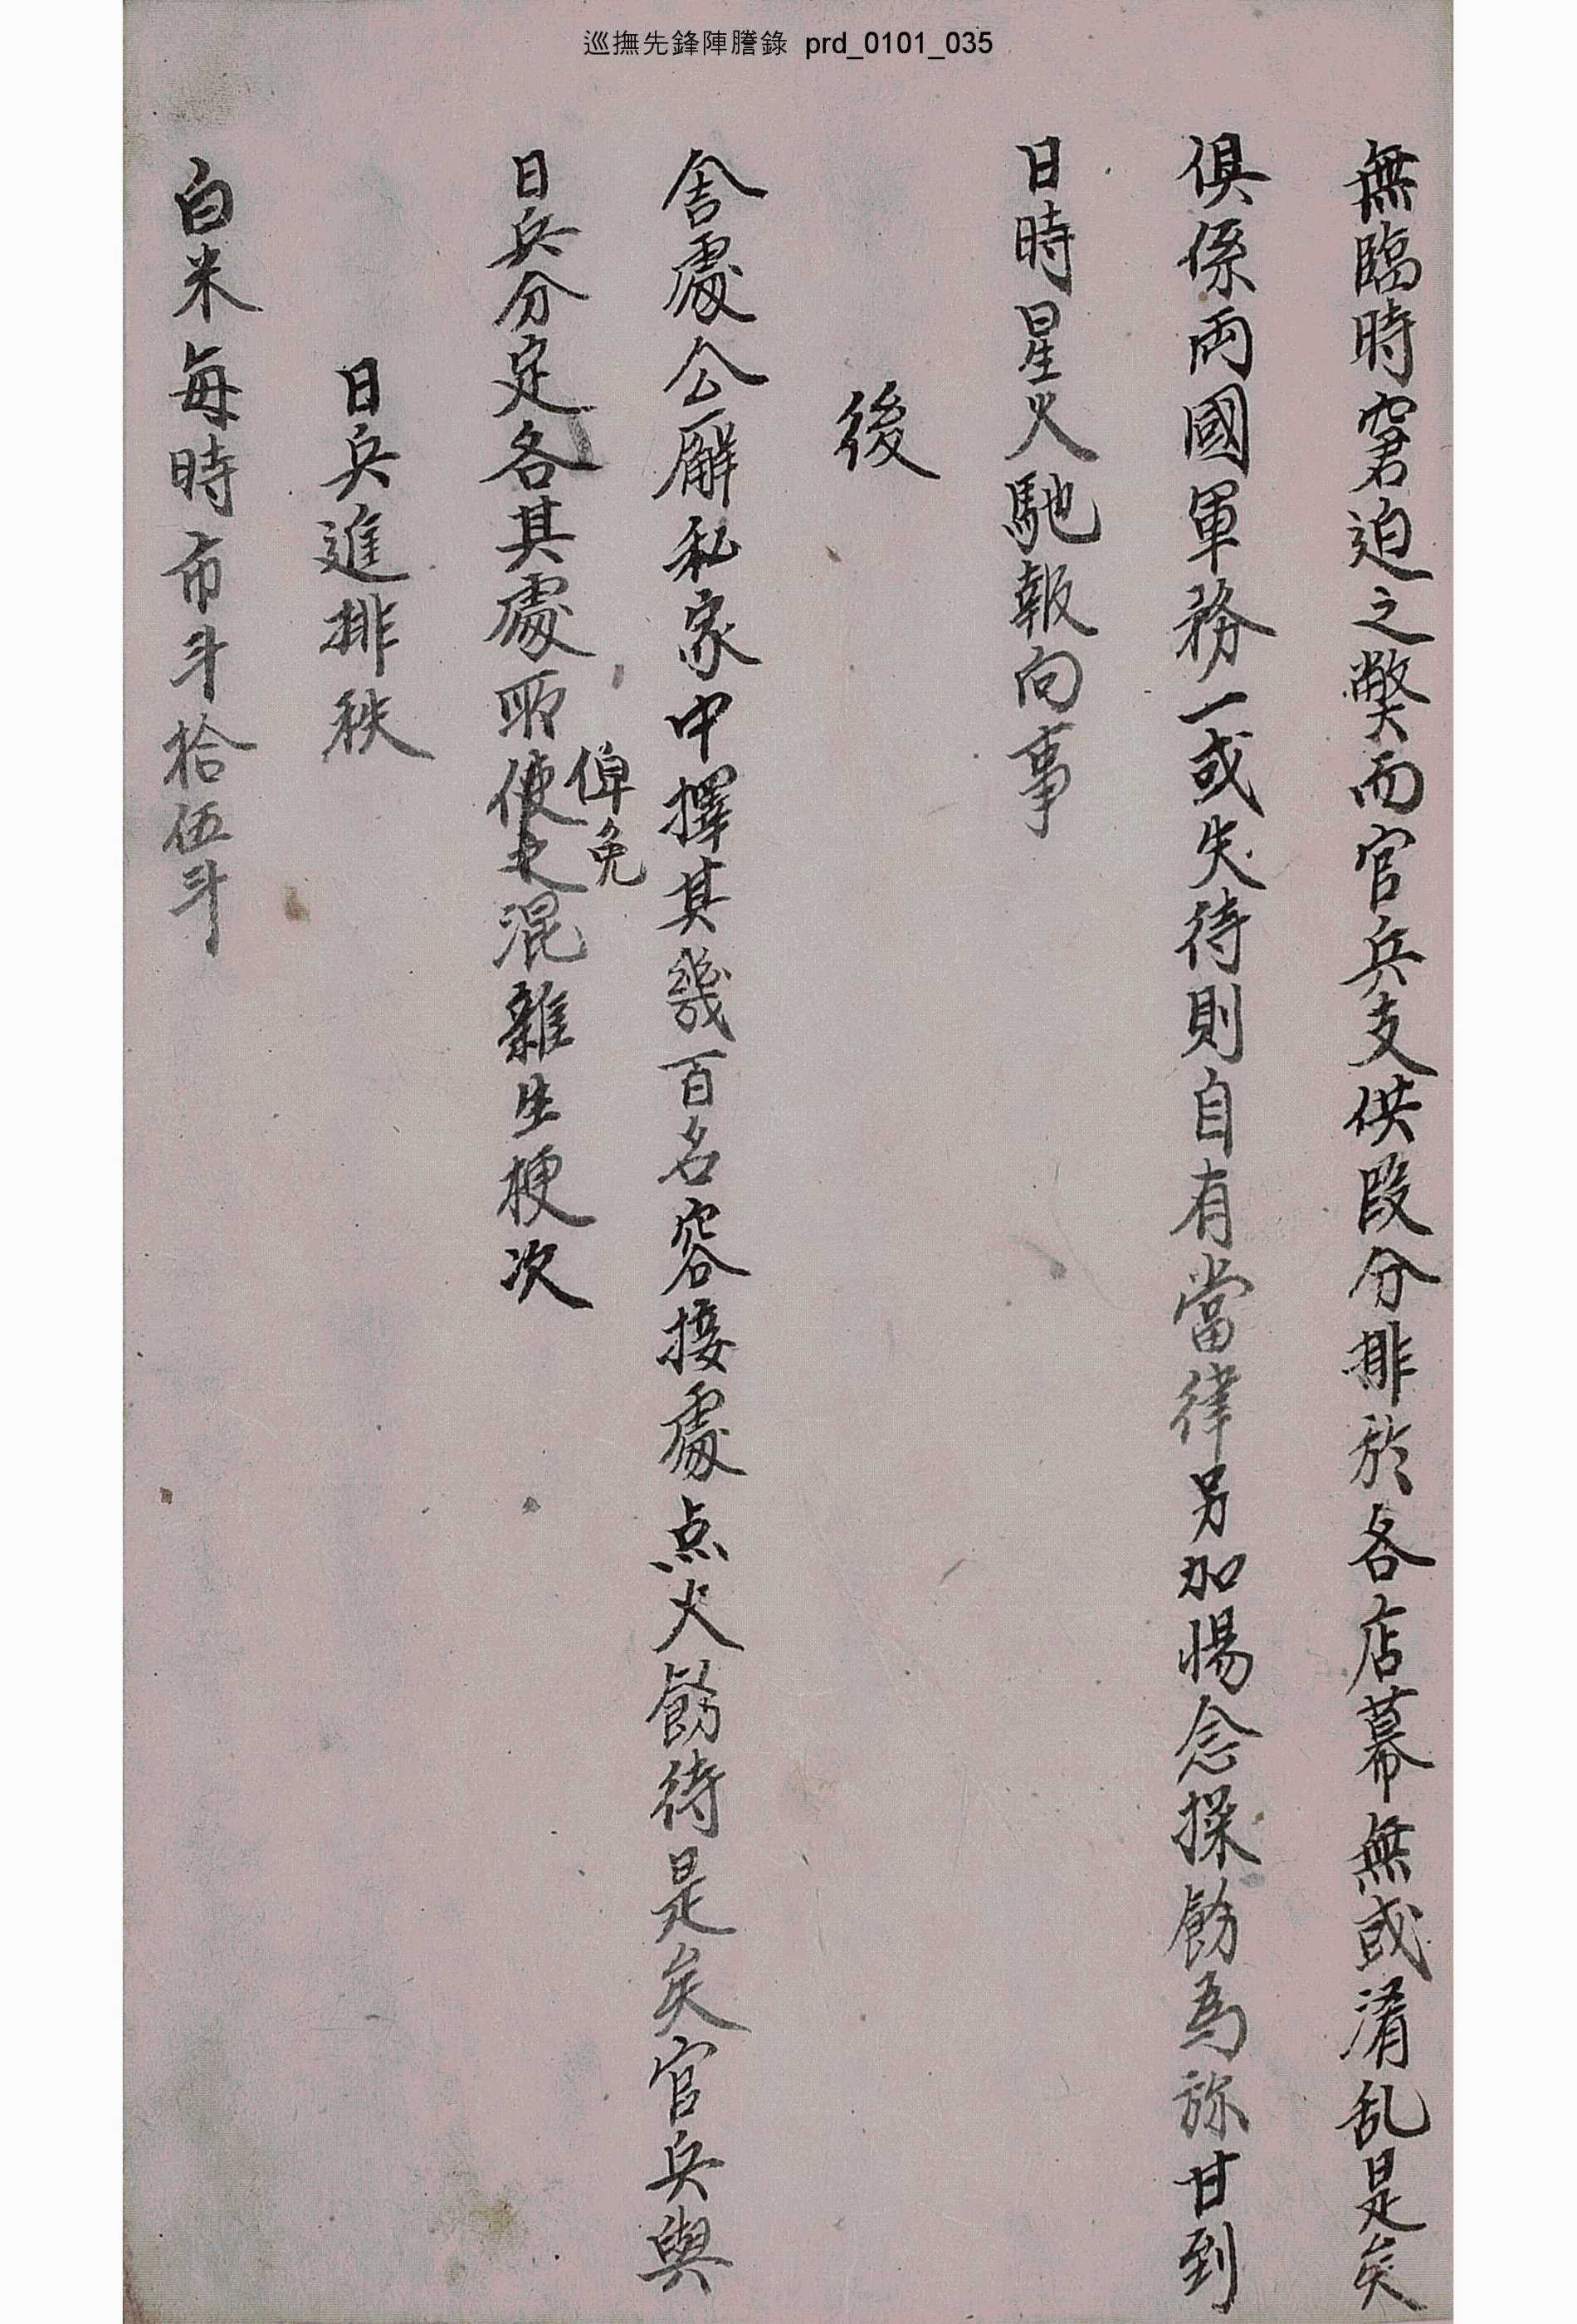 巡撫先鋒陣謄錄 prd_0101_035
無臨時窘迫之獘而官兵支供段分排於各店幕無或淆乱是矣
俱係両國軍務一或失待則自有當律另加惕念操飭為旀甘到
日時星火馳報向事
後
舍處公廨私家中擇其幾百名容接處点火飭待是矣官兵與
日兵分定各其處所使之混雜生梗次
俾免
日兵進排秩
白米每時市斗拾伍斗